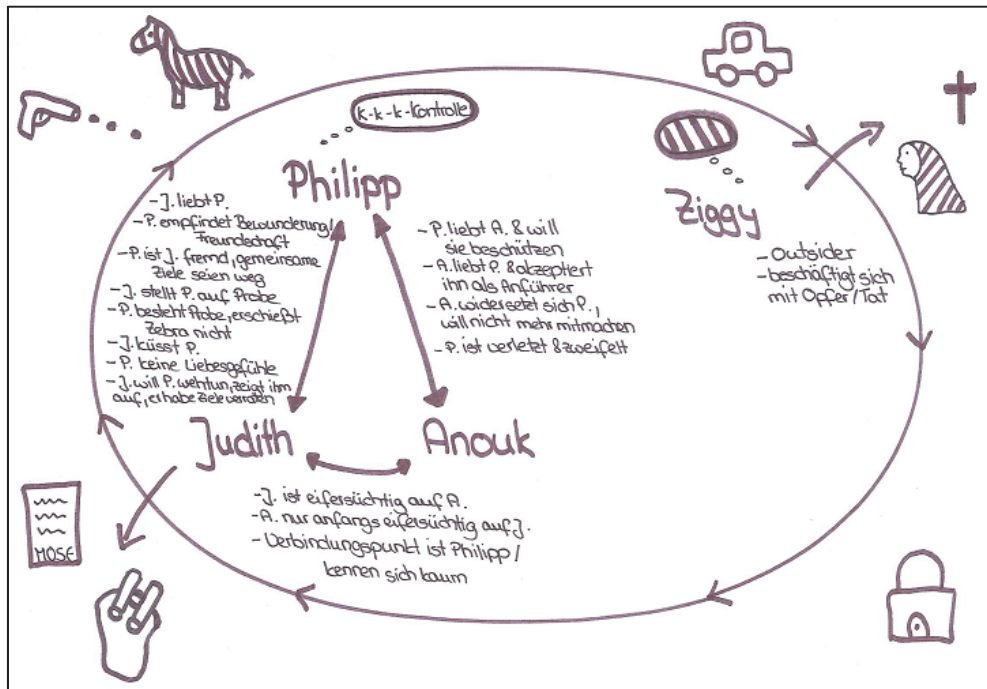 K-K-K-Kontrolle
Philipp
Ziggy
-J. liebt P.
-P. empfindet Bewunderung/
Freundschaft
-P. ist J. fremd, gemeinsame
Ziele seien weg
-J. stellt P. auf Probe
-P. besteht Probe, erschießt
Zebra nicht
-J. küsst P.
-P. keine Liebesgefühle
-J. will P. wehtun, zeigt ihm
auf, er habe Ziele verraten
-P. liebt A. & will
sie beschützen
-A. liebt P. & akzeptiert
ihn als Anführer
-A. widersetzt sich P.,
will nicht mehr mitmachen
-P. ist verletzt & zweifelt
-Outsider
-beschäftigt sich
mit Opfer/Tat
Judith
Anouk
-J. ist eifersüchtig auf A.
-A. nur anfangs eifersüchtig auf J.
-Verbindungspunkt ist Philipp/
kennen sich kaum
MOSE